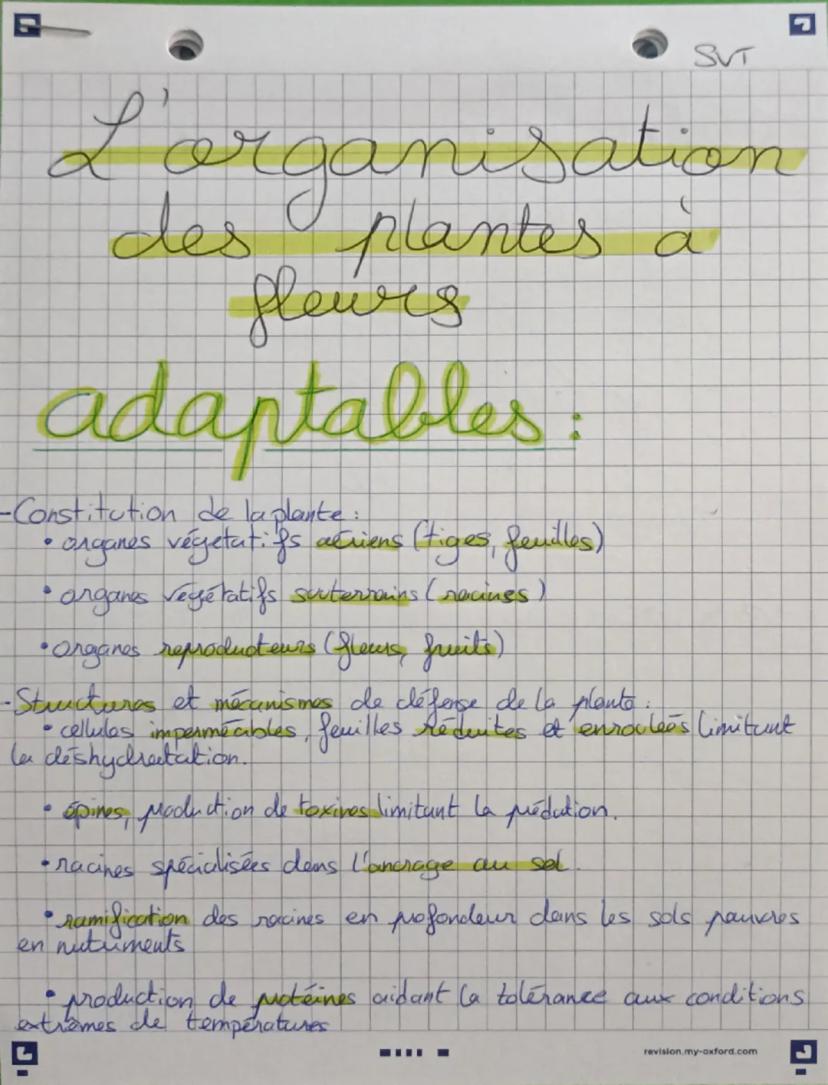 SVT
L'organisation
des plantes à
fleurs
adaptables :
-Constitution de la plante :
• organes végétatifs aériens (tiges, feuilles)
• organes végétatifs souterrains (racines)
• organes reproducteurs (fleurs, fruits)
-Structures et mécanismes de défense de la plante :
• cellules imperméables, feuilles réduites et enroulées limitant
la déshydratation.
• épines, production de toxines limitant la prédation.
• racines spécialisées dans l'ancrage au sol.
• ramification des racines en profondeur dans les sols pauvres
en nutriments
• production de protéines aidant la tolérance aux conditions
extrêmes de températures
revision.my-oxford.com